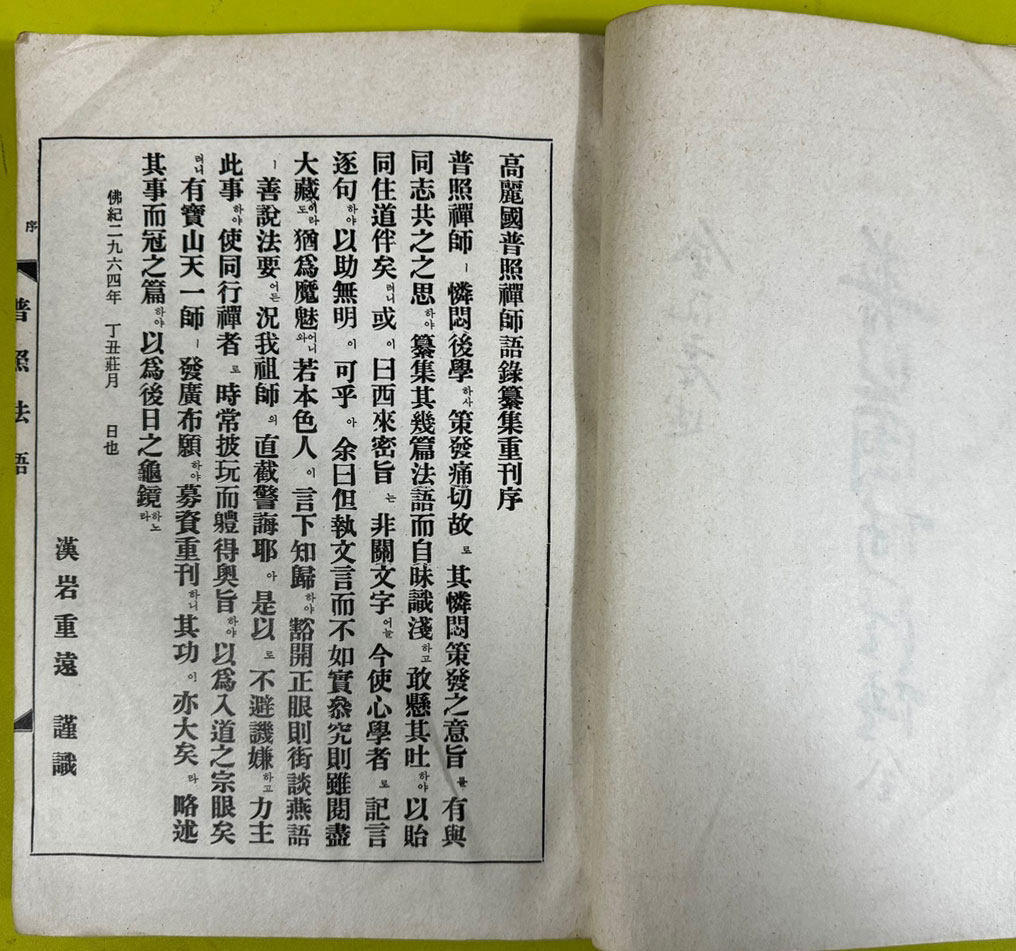 高麗國普照禪師語錄纂集重刊序
普照禪師ㅣ憐悶後學하사策發痛切故로其憐悶策發之意旨를有與
同志共之之思하야纂集其幾篇法語而自昧識淺하고敢懸其吐하야以貽
同住道伴矣러니或이曰西來密旨는非關文字어늘今使心學者로記言
逐句하야以助無明이可乎아余曰但執文言而不如實叅究則雖閱盡
大藏이라도猶爲魔魅어니와若本色人이言下知歸하야豁開正眼則街談燕語
ㅣ善說法要어든況我祖師의直截警誨耶아是以로不避譏嫌하고力主
此事하야使同行禪者로時常披玩而軆得奧旨하야以爲入道之宗眼矣
러니有寶山天一師ㅣ發廣布願하야募資重刊하니其功이亦大矣라略述
其事而冠之篇하야以爲後日之龜鏡하노라
佛紀二九六四年 丁丑莊月 日也
漢岩重遠 謹識
序
普照法語